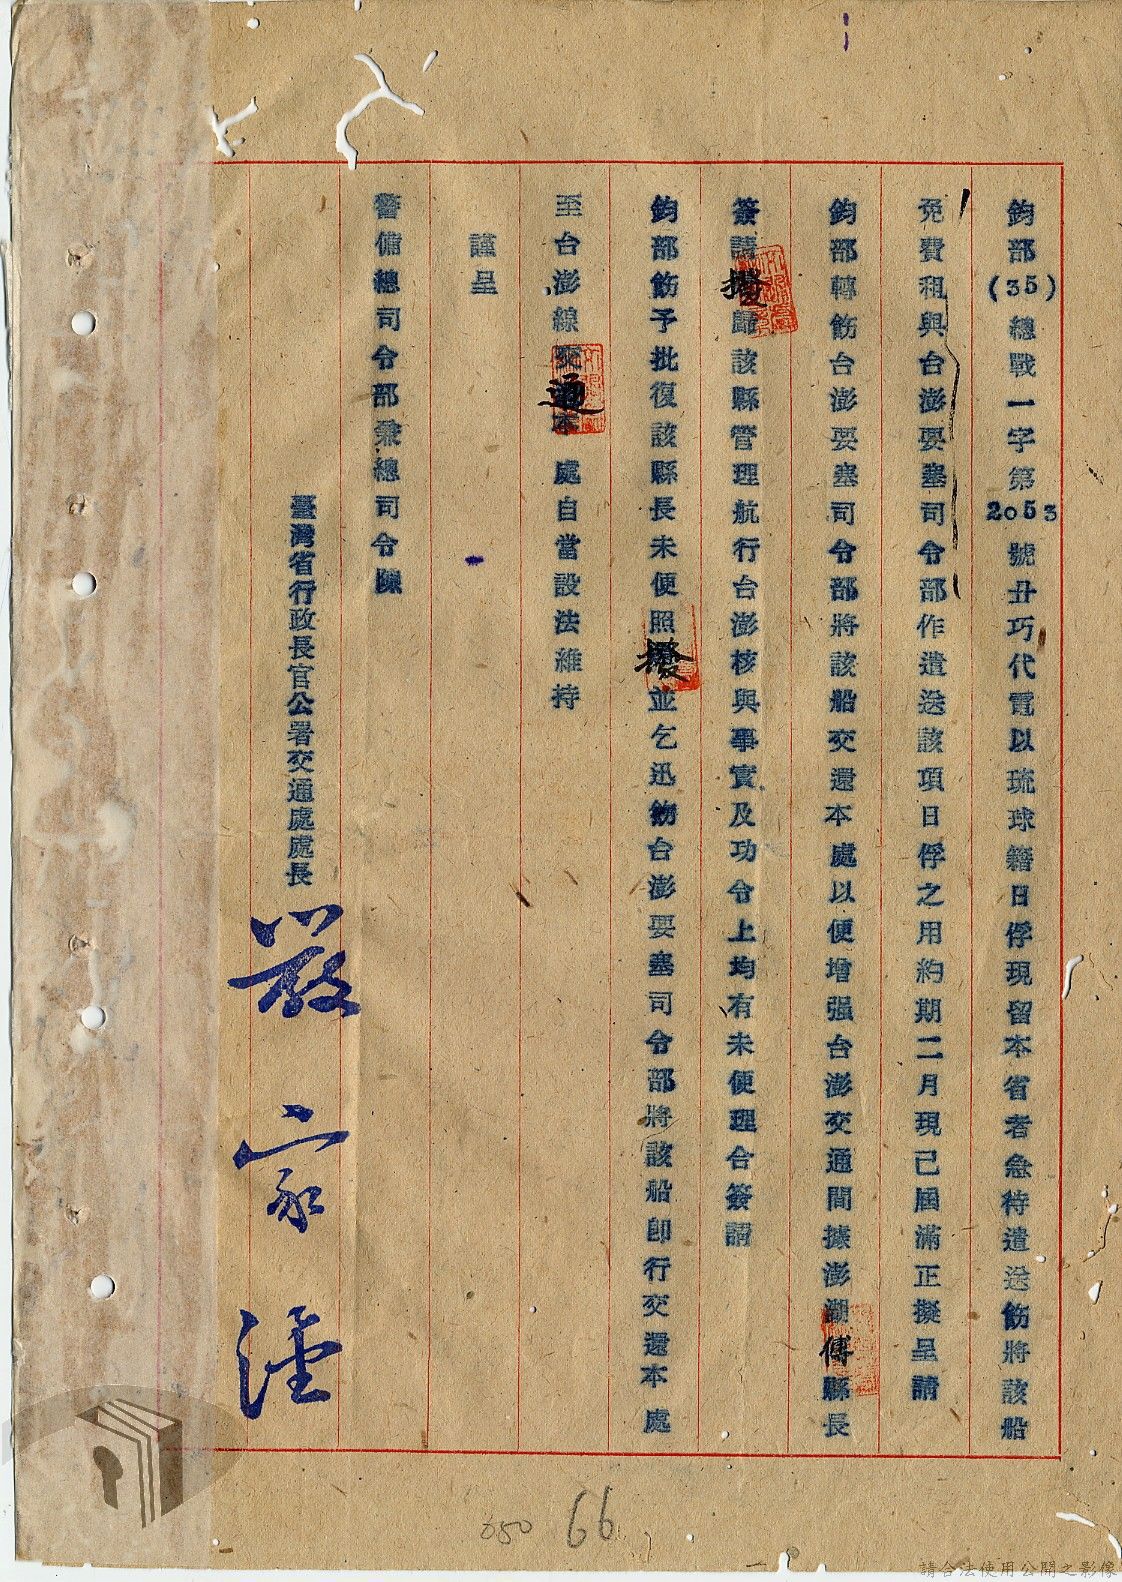 鈞部(35)總戰一字第2053號丑巧代電以琉球籍日俘現留本省者急待遣送飭將該船
免費租與台澎要塞司令部作遣送該項日俘之用約期二月現已屆滿正擬呈請
鈞部轉飭台澎要塞司令部將該船交還本處以便增强台澎交通間據澎湖傅縣長
簽請撥歸該縣管理航行台澎核與事實及功令上均有未便理合簽請
鈞部飭予批復該縣長未便照撥並乞迅飭台澎要塞司令部將該船卽行交還本處
至台澎線交通本處自當設法維持
謹呈
警備總司令部兼總司令陳
臺灣省行政長官公署交通處處長
嚴家淦
050 66
請合法使用公開之影像